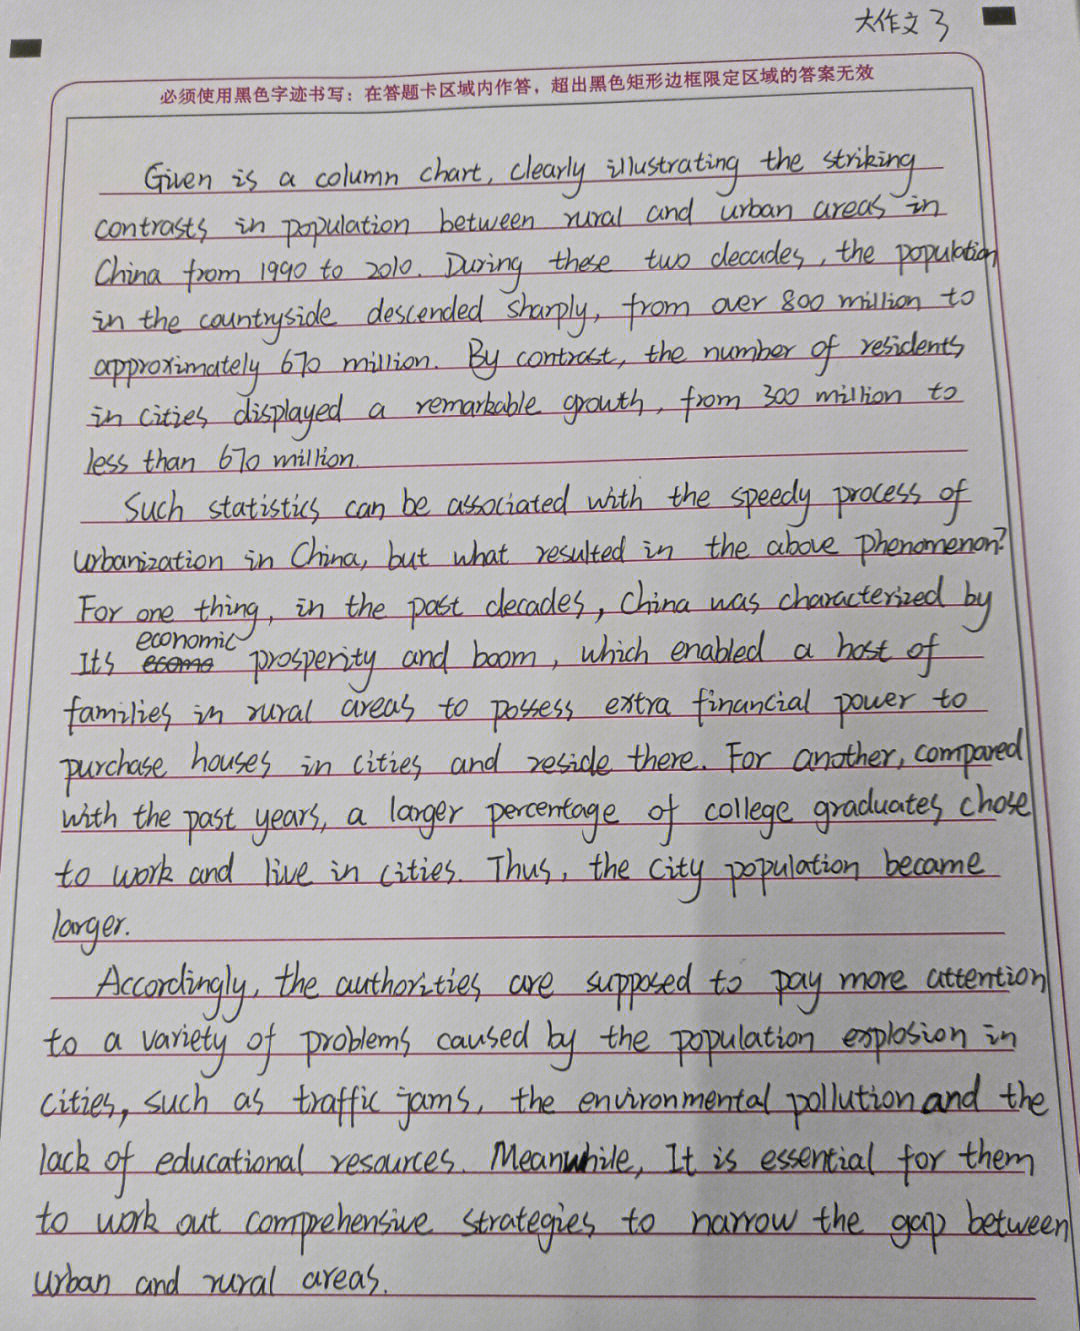 大作文3
必须使用黑色字迹书写：在答题卡区域内作答，超出黑色矩形边框限定区域的答案无效
Given is a column chart, clearly illustrating the striking
contrasts in population between rural and urban areas in
China from 1990 to 2010. During these two decades, the population
in the countryside descended sharply, from over 800 million to
approximately 670 million. By contrast, the number of residents
in cities displayed a remarkable growth, from 300 million to
less than 670 million.
Such statistics can be associated with the speedy process of
urbanization in China, but what resulted in the above phenomenon?
For one thing, in the past decades, China was characterized by
Its economic prosperity and boom, which enabled a host of
families in rural areas to possess extra financial power to
purchase houses in cities and reside there. For another, compared
with the past years, a larger percentage of college graduates chose
to work and live in cities. Thus, the city population became
larger.
Accordingly, the authorities are supposed to pay more attention
to a variety of problems caused by the population explosion in
cities, such as traffic jams, the environmental pollution and the
lack of educational resources. Meanwhile, It is essential for them
to work out comprehensive strategies to narrow the gap between
urban and rural areas.